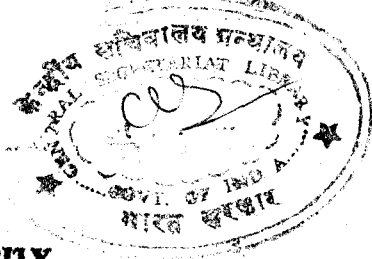 केन्द्रीय सचिवालय ग्रन्थालय
CENTRAL SECRETARIAT LIBRARY
GOVT. OF INDIA
भारत सरकार